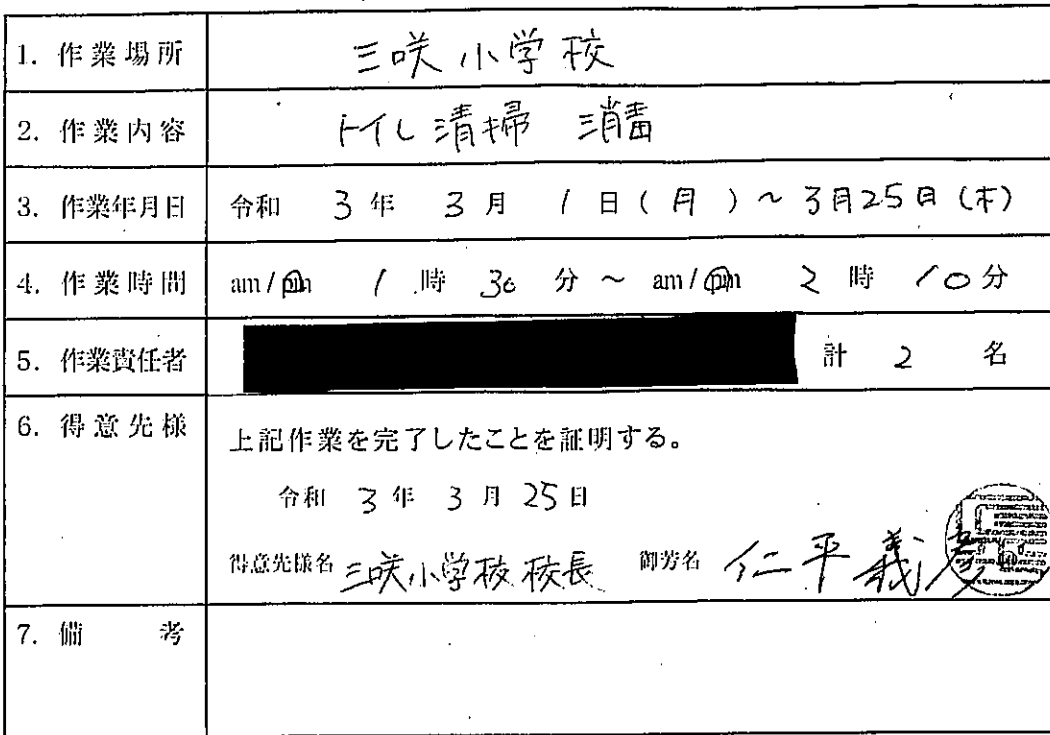 1. 作業場所 三咲小学校
2. 作業内容 トイレ清掃 消毒
3. 作業年月日 令和 3年 3月 1日(月)~3月25日(木)
4. 作業時間 am/pm 1時30分~am/pm 2時10分
5. 作業責任者 計 2 名
6. 得意先様 上記作業を完了したことを証明する。
令和 3年 3月 25日
得意先様名 三咲小学校 校長 御芳名 仁平義
7. 備 考